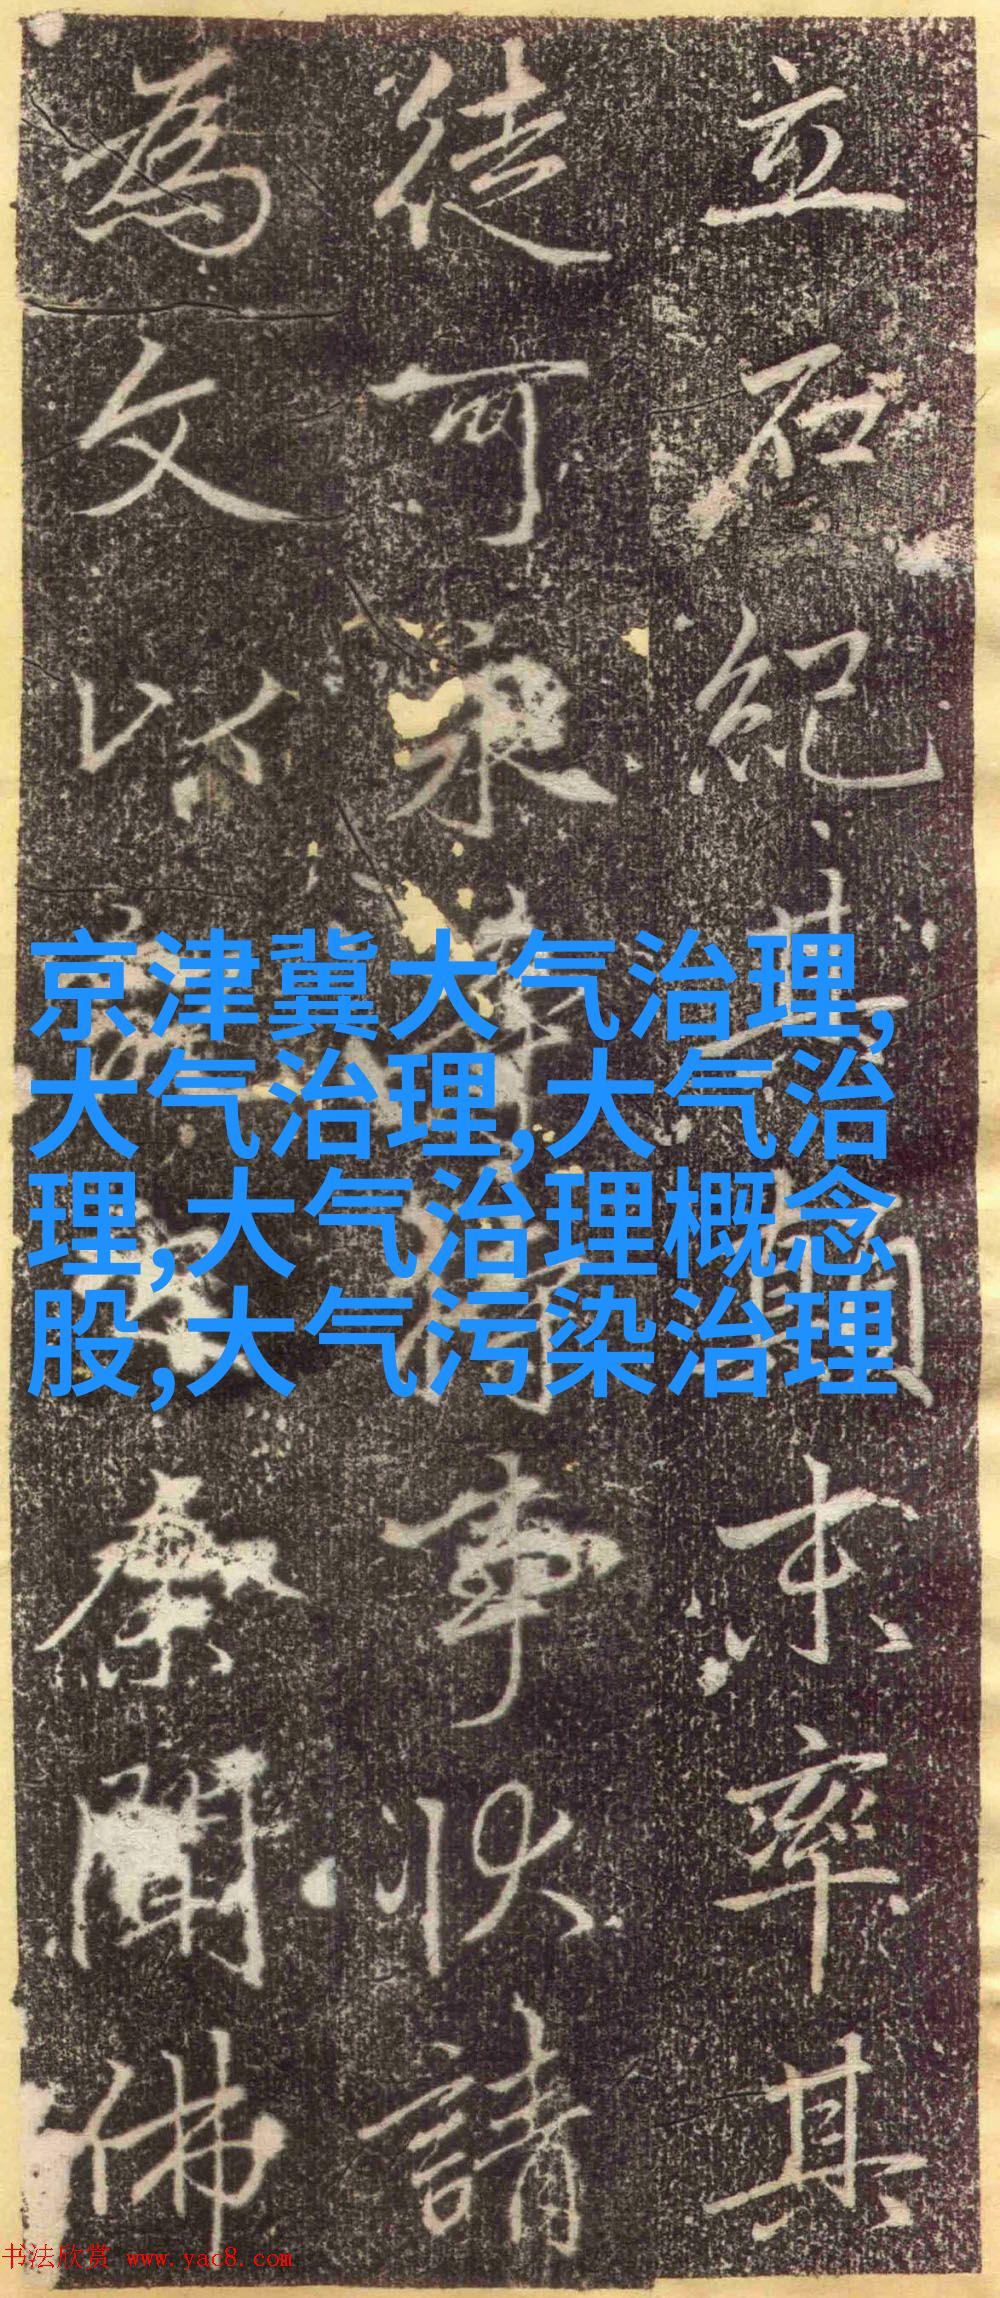 立石紀其末率其
徒可永事狀請
為文以聞佛
京津冀大气治理,
大气治理,大气治
理,大气治理概念
股,大气污染治理
书法欣赏 www.yac8.com